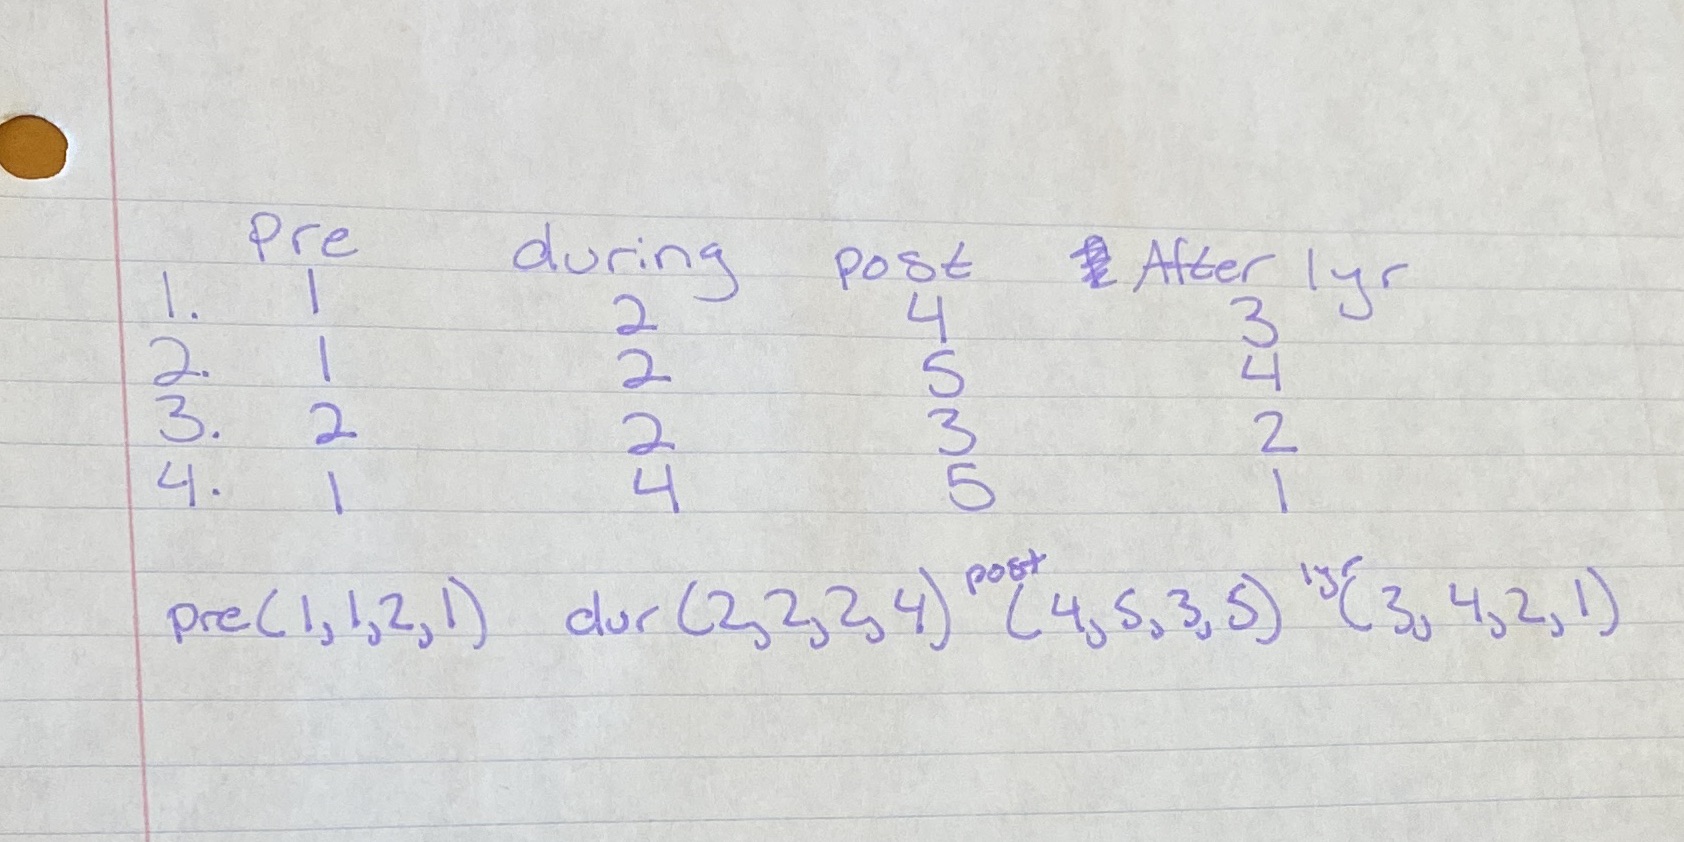 Pre during post After 1yr
1. 1 2 4 3
2. 1 2 5 4
3. 2 2 3 2
4. 1 4 5 1
pre(1,1,2,1) dur(2,2,2,4) post(4,5,3,5) 1yr(3,4,2,1)